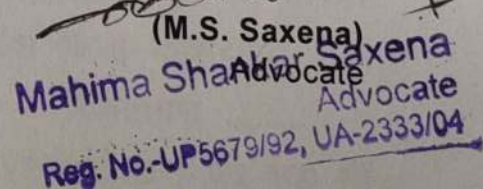 (M.S. Saxena)
Advocate
Mahima Shankar Saxena
Advocate
Reg. No.-UP5679/92, UA-2333/04